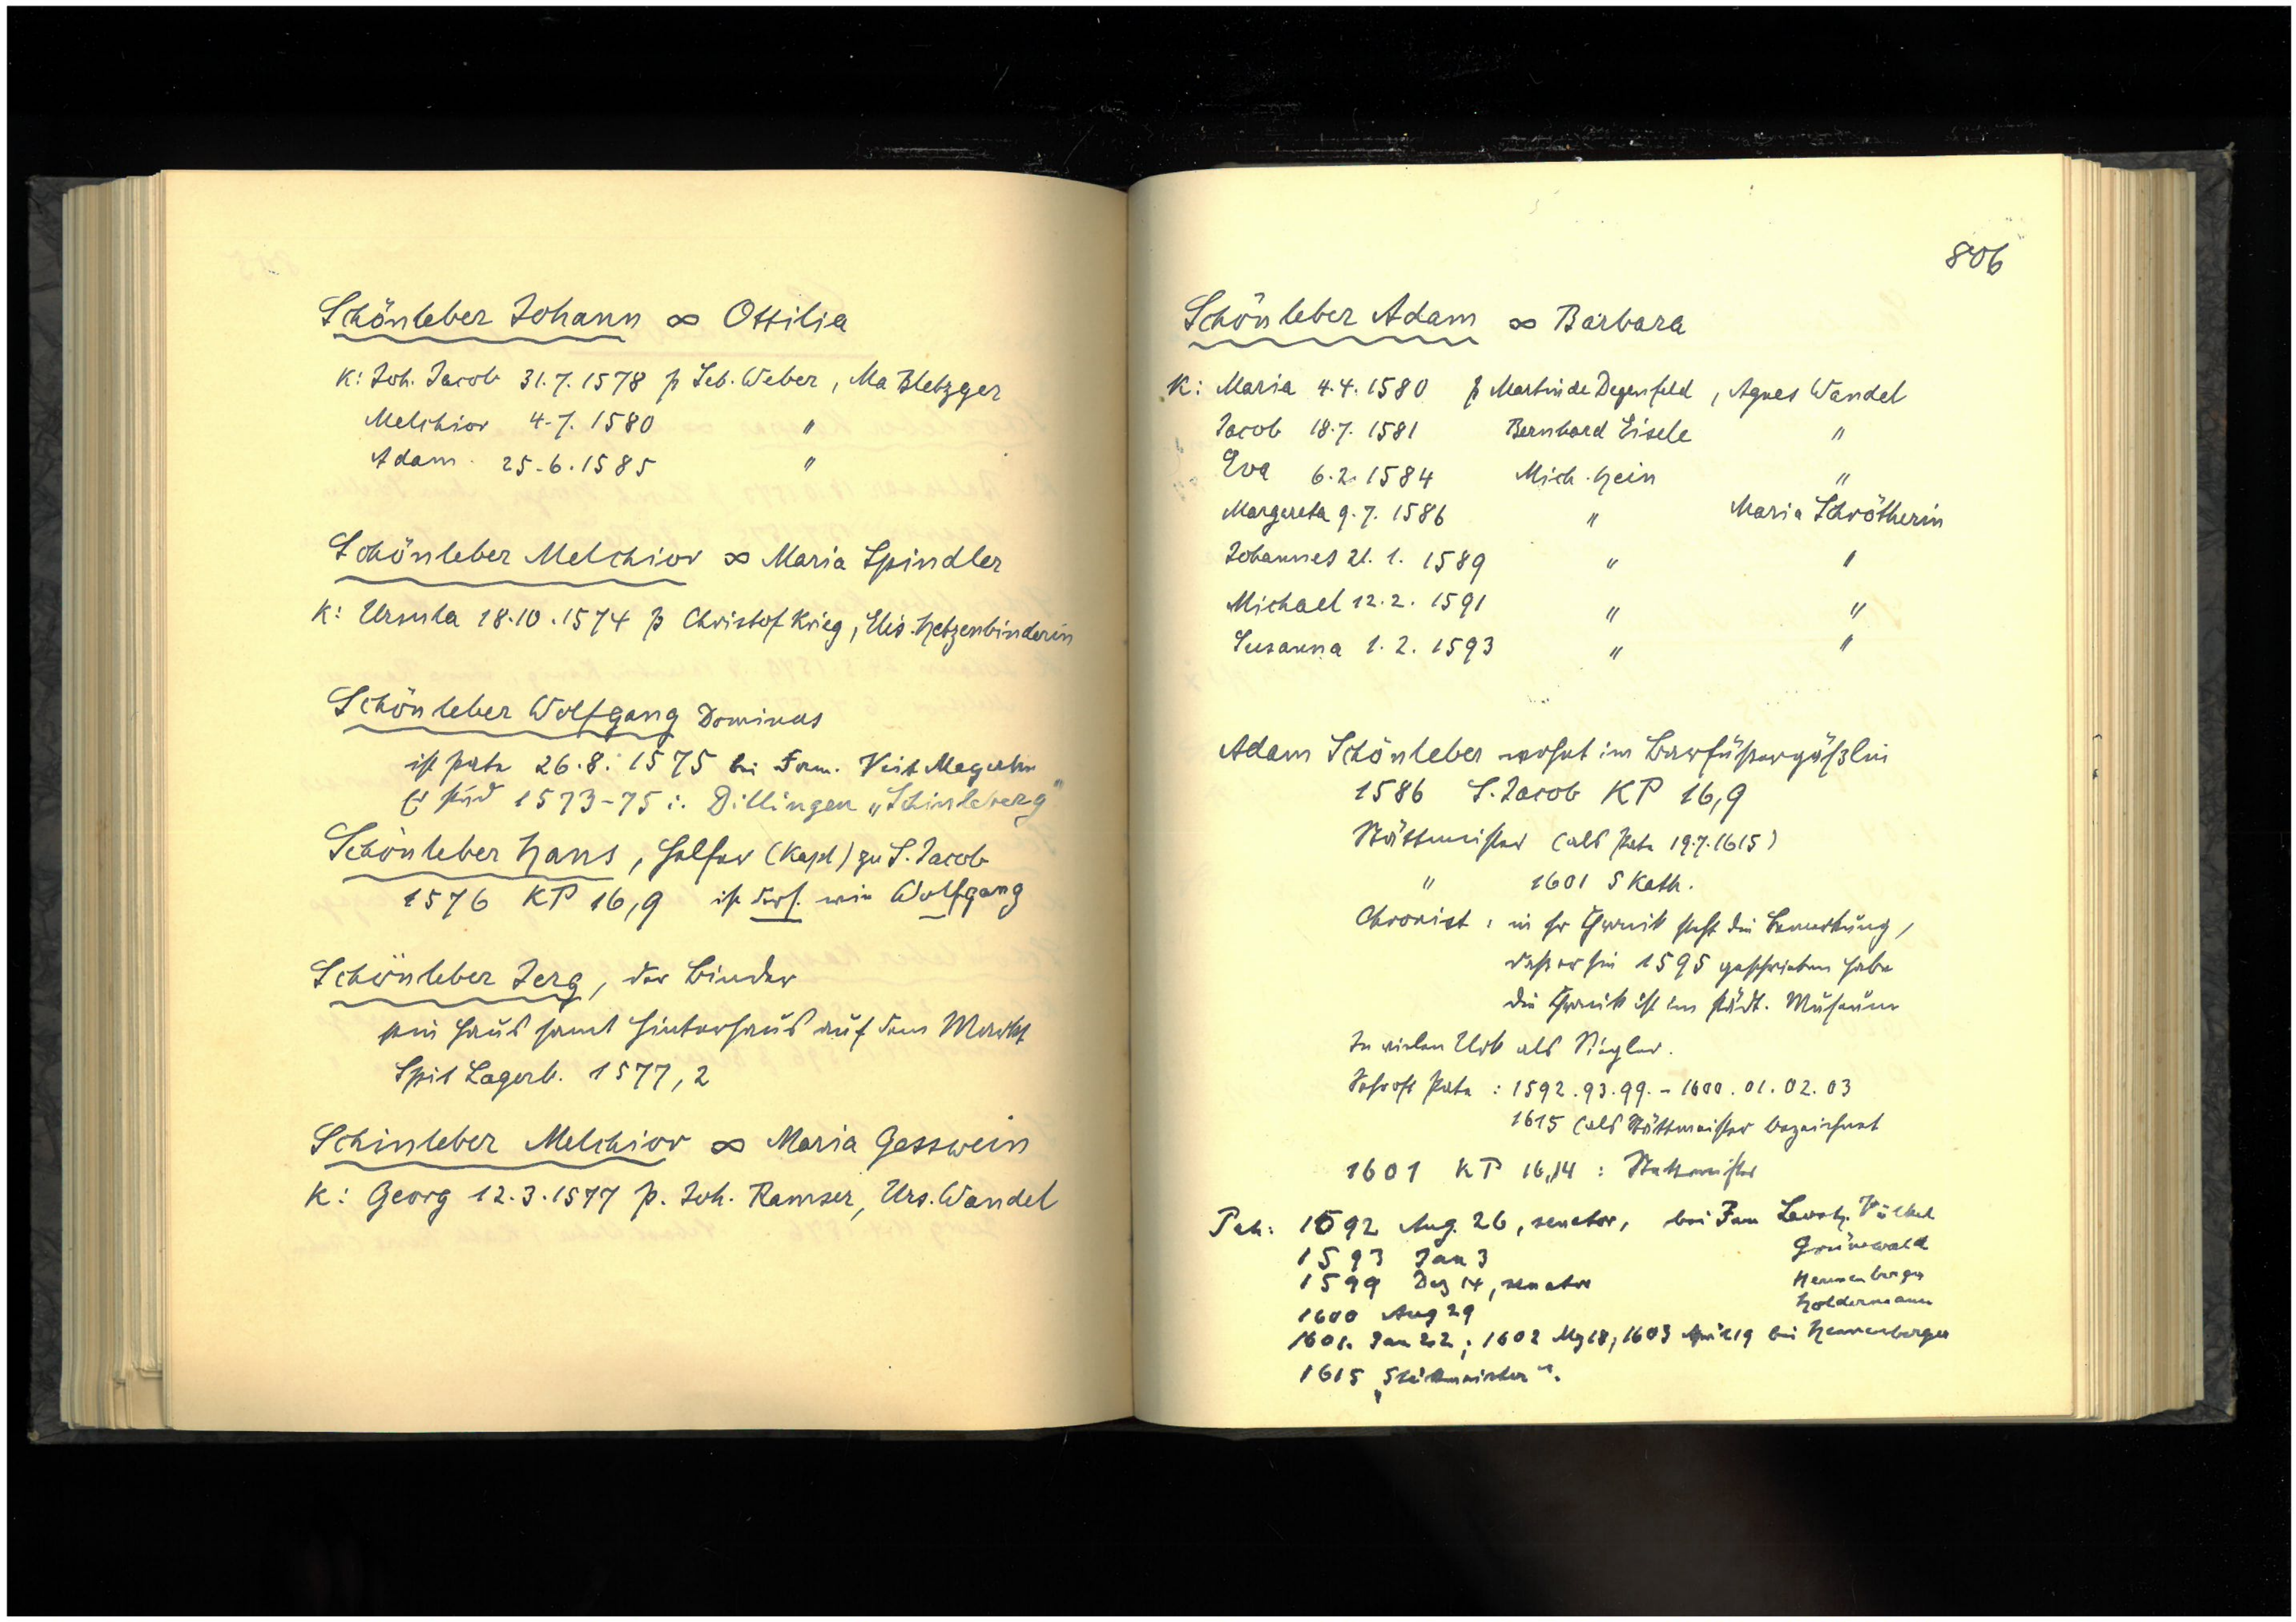 Schönleber Johann ∞ Ottilia
K: Joh. Jacob 31.7.1578 p Seb. Weber, Ma Bletzger
Melchior 4.7.1580 "
Adam 25.6.1585 "
Schönleber Melchior ∞ Maria Spindler
K: Ursula 18.10.1574 p Christof Krieg, Elis. Hetzenbinderin
Schönleber Wolfgang Dominus
ist Pate 26.8.1575 bei Fam. Veit Megerlin
Er stud 1573-75 i. Dillingen „Schinleberg"
Schönleber Hans, Helfer (Kapl) zu S. Jacob
1576 KP 16,9 ist ders. wie Wolfgang
Schönleber Jerg, der Binder
sein Haus samt Hinterhaus auf dem Markt
Spit Lagerb. 1577, 2
Schinleber Melchior ∞ Maria Gesswein
K: Georg 12.3.1577 p. Joh. Ramser, Urs. Wandel
806
Schönleber Adam ∞ Barbara
K: Maria 4.4.1580 p Martin de Degenfeld, Agnes Wandel
Jacob 18.7.1581 Bernhard Eisele "
Eva 6.2.1584 Mich. Hein "
Margareta 9.7.1586 " Maria Schrötherin
Johannes 21.1.1589 " "
Michael 12.2.1591 " "
Susanna 1.2.1593 " "
Adam Schönleber wohnt im Barfüßergäßlein
1586 S. Jacob KP 16,9
Stättmeister (als Pate 19.7.1615)
" 1601 S Kath.
Chronist: in der Chronik steht die Bemerkung,
daß er sie 1595 geschrieben habe
die Chronik ist im städt. Museum
In vielen Urk als Siegler.
Sehr oft Pate: 1592.93.99.-1600.01.02.03
1615 (als Stättmeister bezeichnet
1601 KP 16,14: Stattmeister
Pate: 1592 Aug. 26, senator, bei Fam
1593 Jan 3 Grünewald
1599 Dez 14, senator Hennenberger
1600 Aug 29 Holdermann
1601. Jan 22; 1602 Mz 18; 1603 April 19 bei Hennenberger
1615 „Stättmeister".